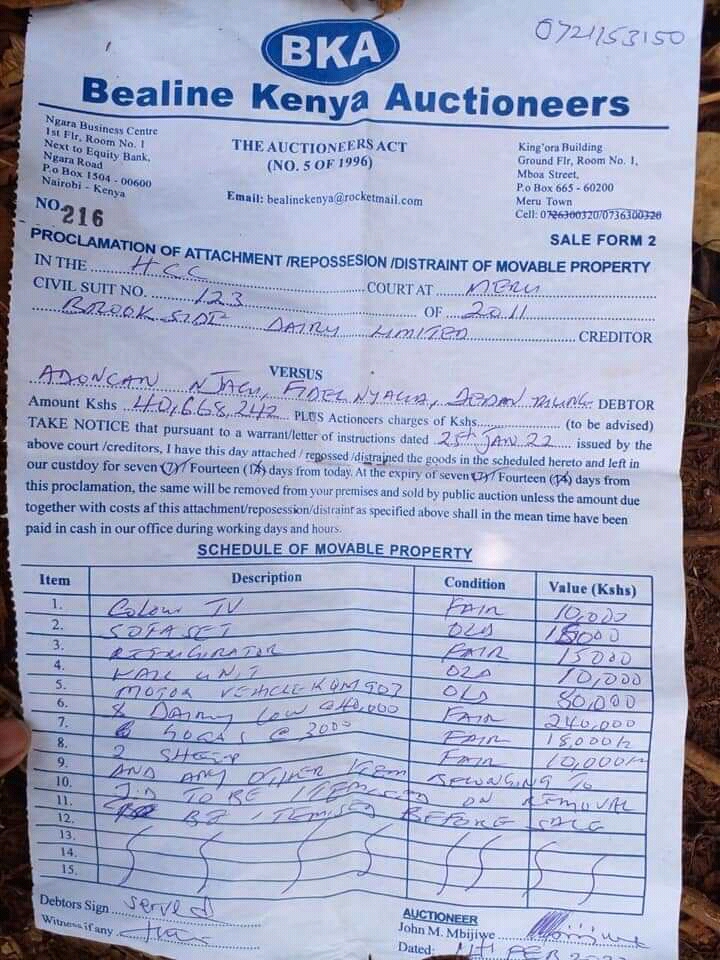 0721153150
BKA
Bealine Kenya Auctioneers
Ngara Business Centre
1st Flr, Room No. 1
Next to Equity Bank,
Ngara Road
P.o Box 1504 - 00600
Nairobi - Kenya
THE AUCTIONEERS ACT
(NO. 5 OF 1996)
Email: bealinekenya@rocketmail.com
King'ora Building
Ground Flr, Room No. 1,
Mboa Street,
P.o Box 665 - 60200
Meru Town
Cell: 0726300320/0736300320
NO. 216
SALE FORM 2
PROCLAMATION OF ATTACHMENT /REPOSSESION /DISTRAINT OF MOVABLE PROPERTY
IN THE HCC COURT AT MERU
CIVIL SUIT NO. 123 OF 2011
BROOK SIDE DAIRY LIMITED CREDITOR
VERSUS
NJAGU, FIDEL DEDAN DEBTOR
Amount Kshs 40,668,242 PLUS Actioneers charges of Kshs (to be advised)
TAKE NOTICE that pursuant to a warrant/letter of instructions dated 25th JAN 22 issued by the
above court /creditors, I have this day attached / repossed /distrained the goods in the scheduled hereto and left in
our custdoy for seven (7)/ Fourteen (14) days from today. At the expiry of seven (7)/ Fourteen (14) days from
this proclamation, the same will be removed from your premises and sold by public auction unless the amount due
together with costs af this attachment/reposession/distraint as specified above shall in the mean time have been
paid in cash in our office during working days and hours.
SCHEDULE OF MOVABLE PROPERTY
Item Description Condition Value (Kshs)
1. Colour TV FAIR 10,000
2. SOFA SET OLD 15000
3. REFRIGIRATOR FAIR 15000
4. WALL UNIT OLD 10,000
5. MOTOR VEHICLE OLD 80,000
6. DAIRY COW @ 40,000 FAIR 240,000
7. 6 GOATS @ 3000 FAIR 18,000
8. 2 SHEEP FAIR 10,000
9. AND ANY OTHER ITEM BELONGING TO
10. J.D TO BE ITEMISED ON REMOVAL
11. BE ITEMISED BEFORE SALE
12.
13.
14.
15.
Debtors Sign served
Witness if any
AUCTIONEER
John M. Mbijiwe
Dated: FEB